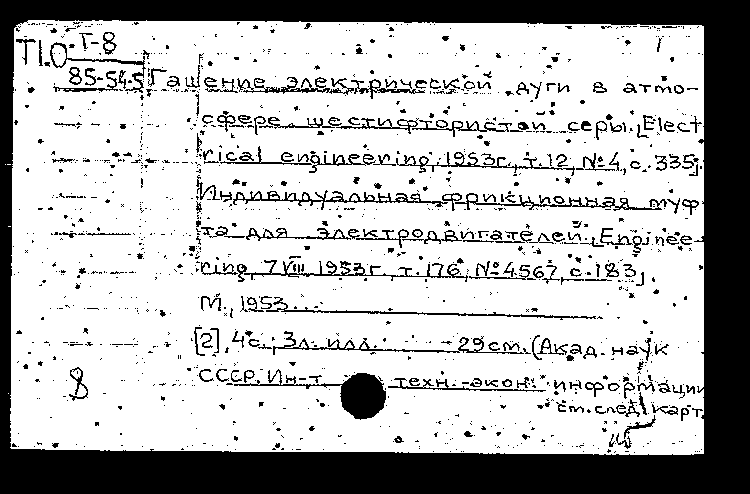 Т1.0 Т-8
85-54-5
Гашение электрической дуги в атмо-
сфере шестифтористой серы. [Elect
rical engineering, 1953г., т.12, №4, с.335].
Индивидуальная фрикционная муф-
та для электродвигателей. [Enginee-
ring, 7 VIII 1953г., т.176, №4567, с.183].
М., 1953...
[2], 4с.; 3л. илл. 29см. (Акад. наук
СССР. Ин-т техн.-экон. информации
см. след. карт.
8